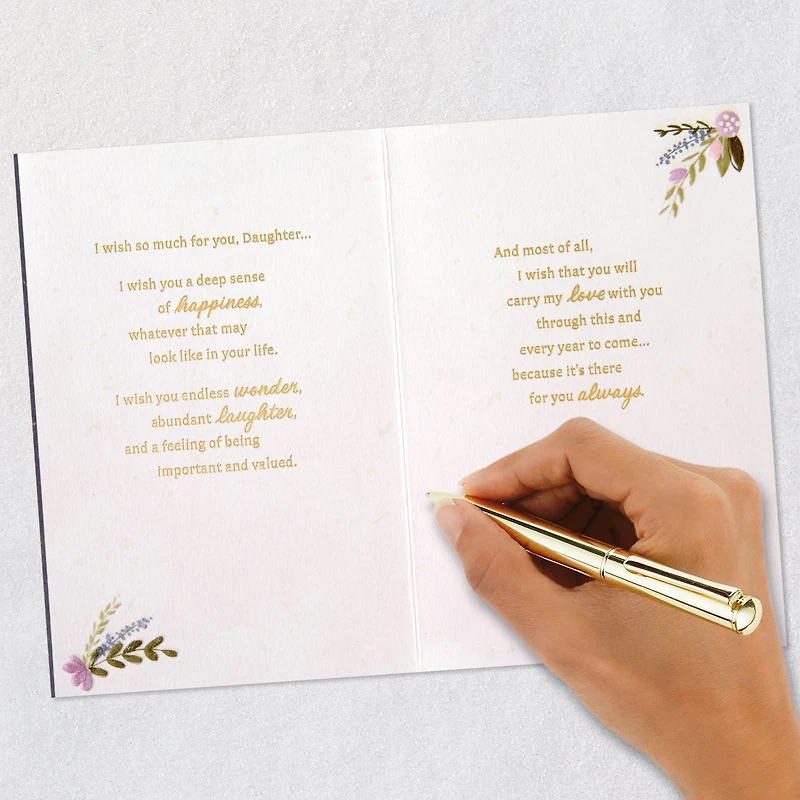 I wish so much for you, Daughter...
I wish you a deep sense
of happiness,
whatever that may
look like in your life.
I wish you endless wonder,
abundant laughter,
and a feeling of being
important and valued.
And most of all,
I wish that you will
carry my love with you
through this and
every year to come...
because it's there
for you always.